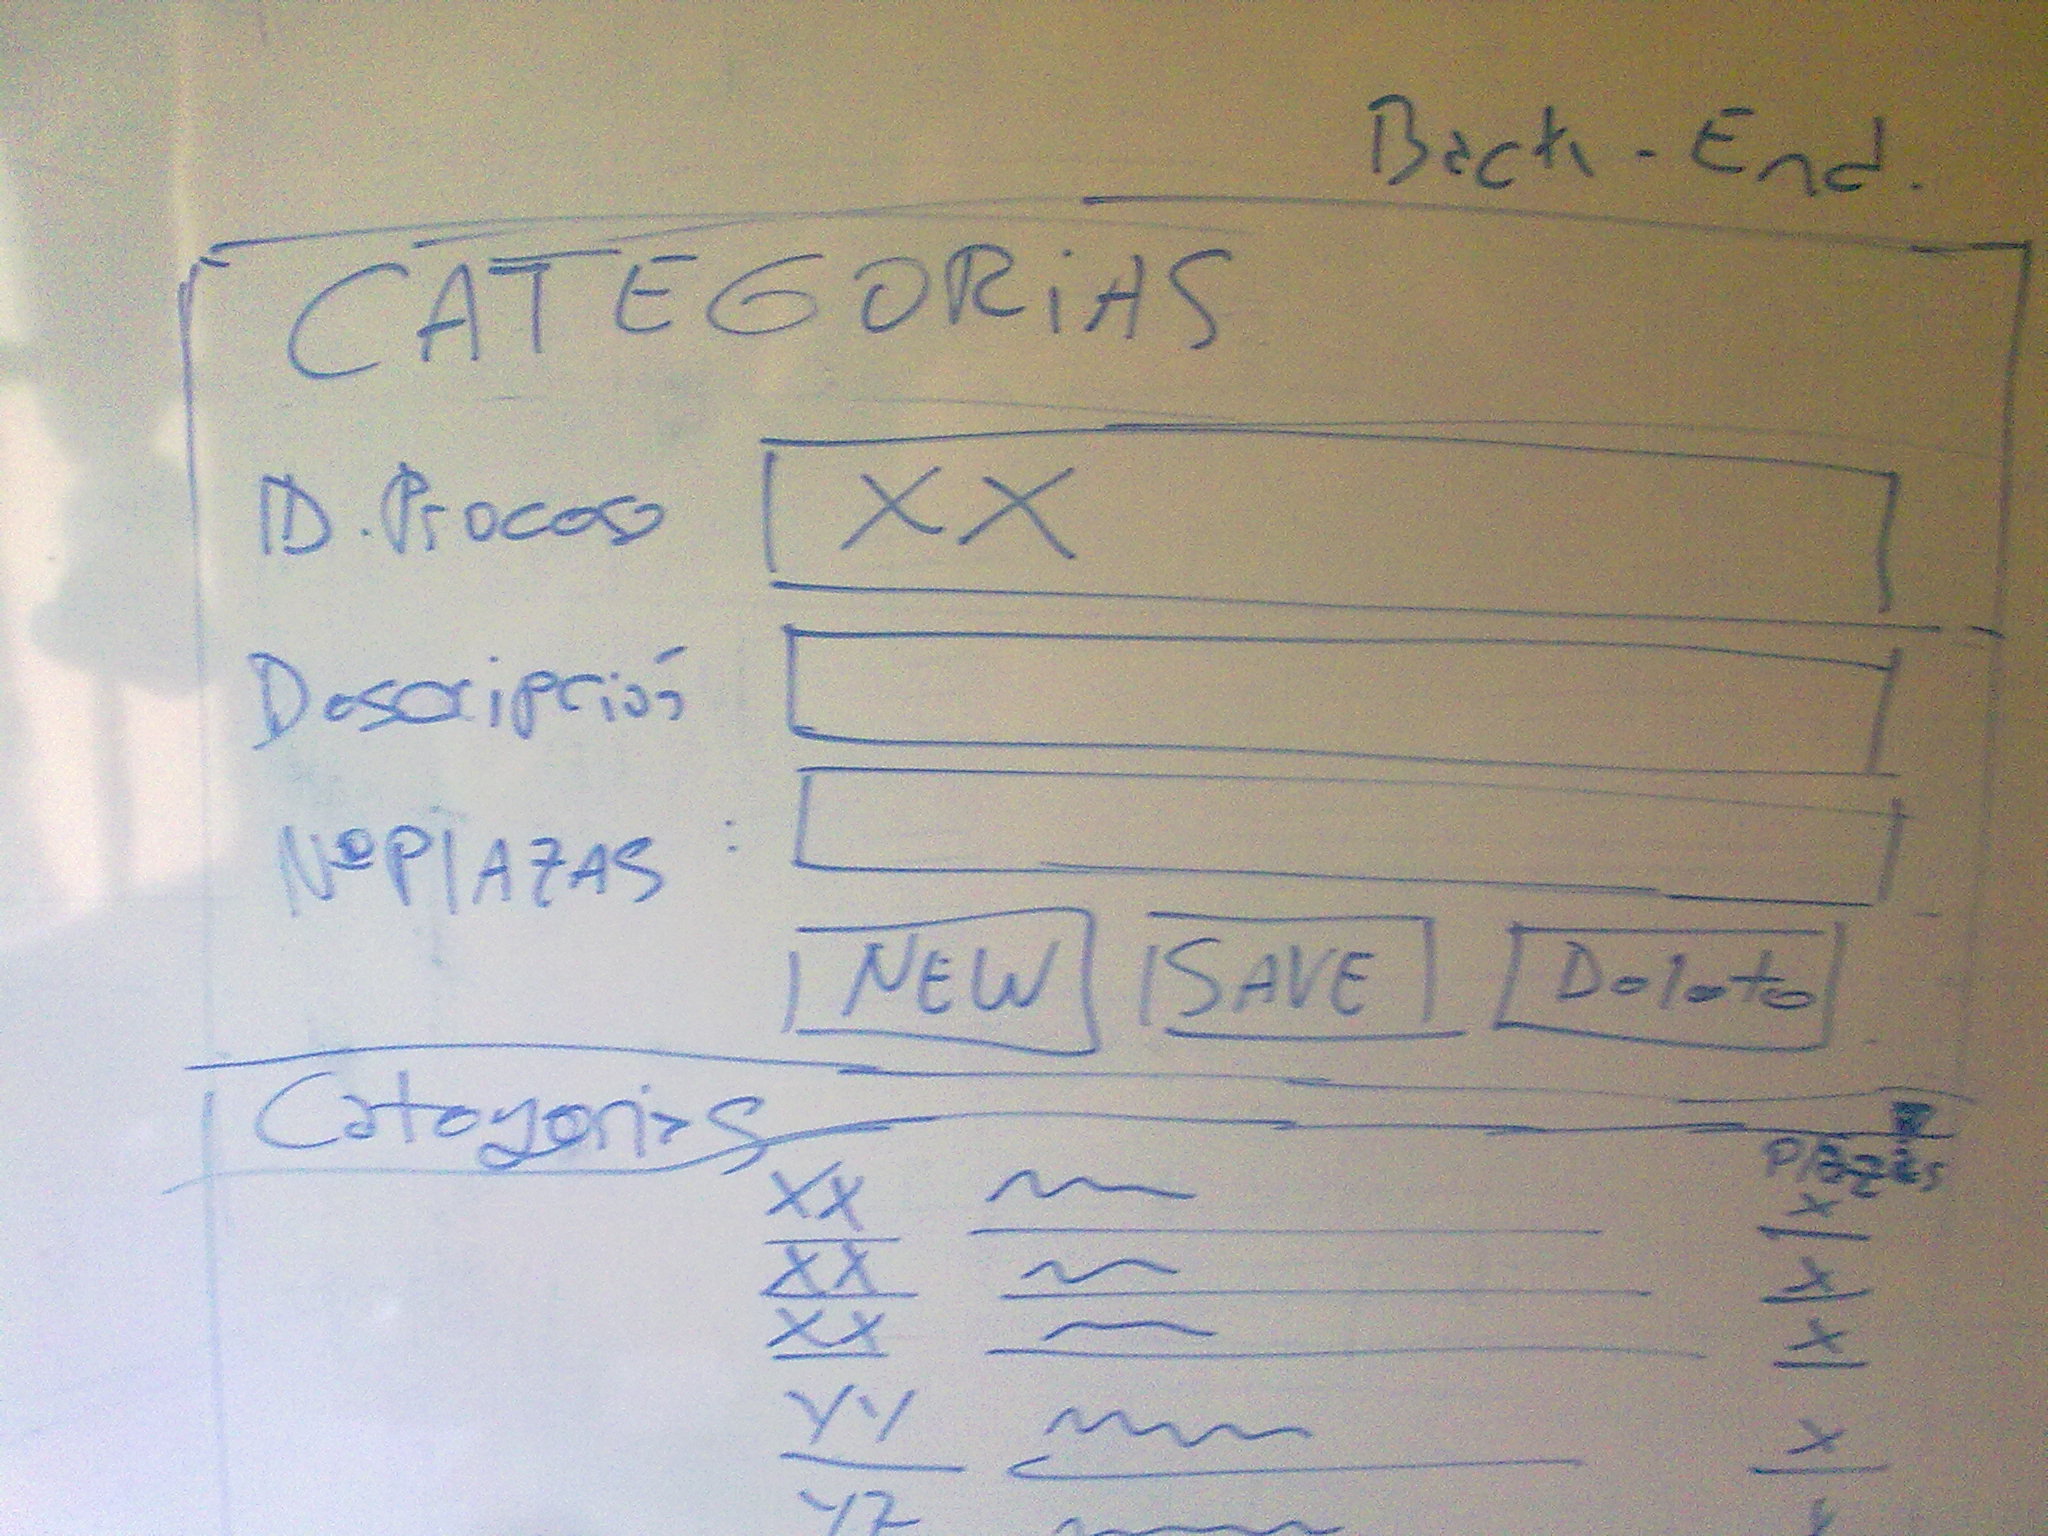 Back-End.
CATEGORiAS
ID. Proceso XX
Descripción
Nº PlAZAS :
NEW SAVE Delete
Categorias
Plazas
XX X
XX X
XX X
YY X
YZ